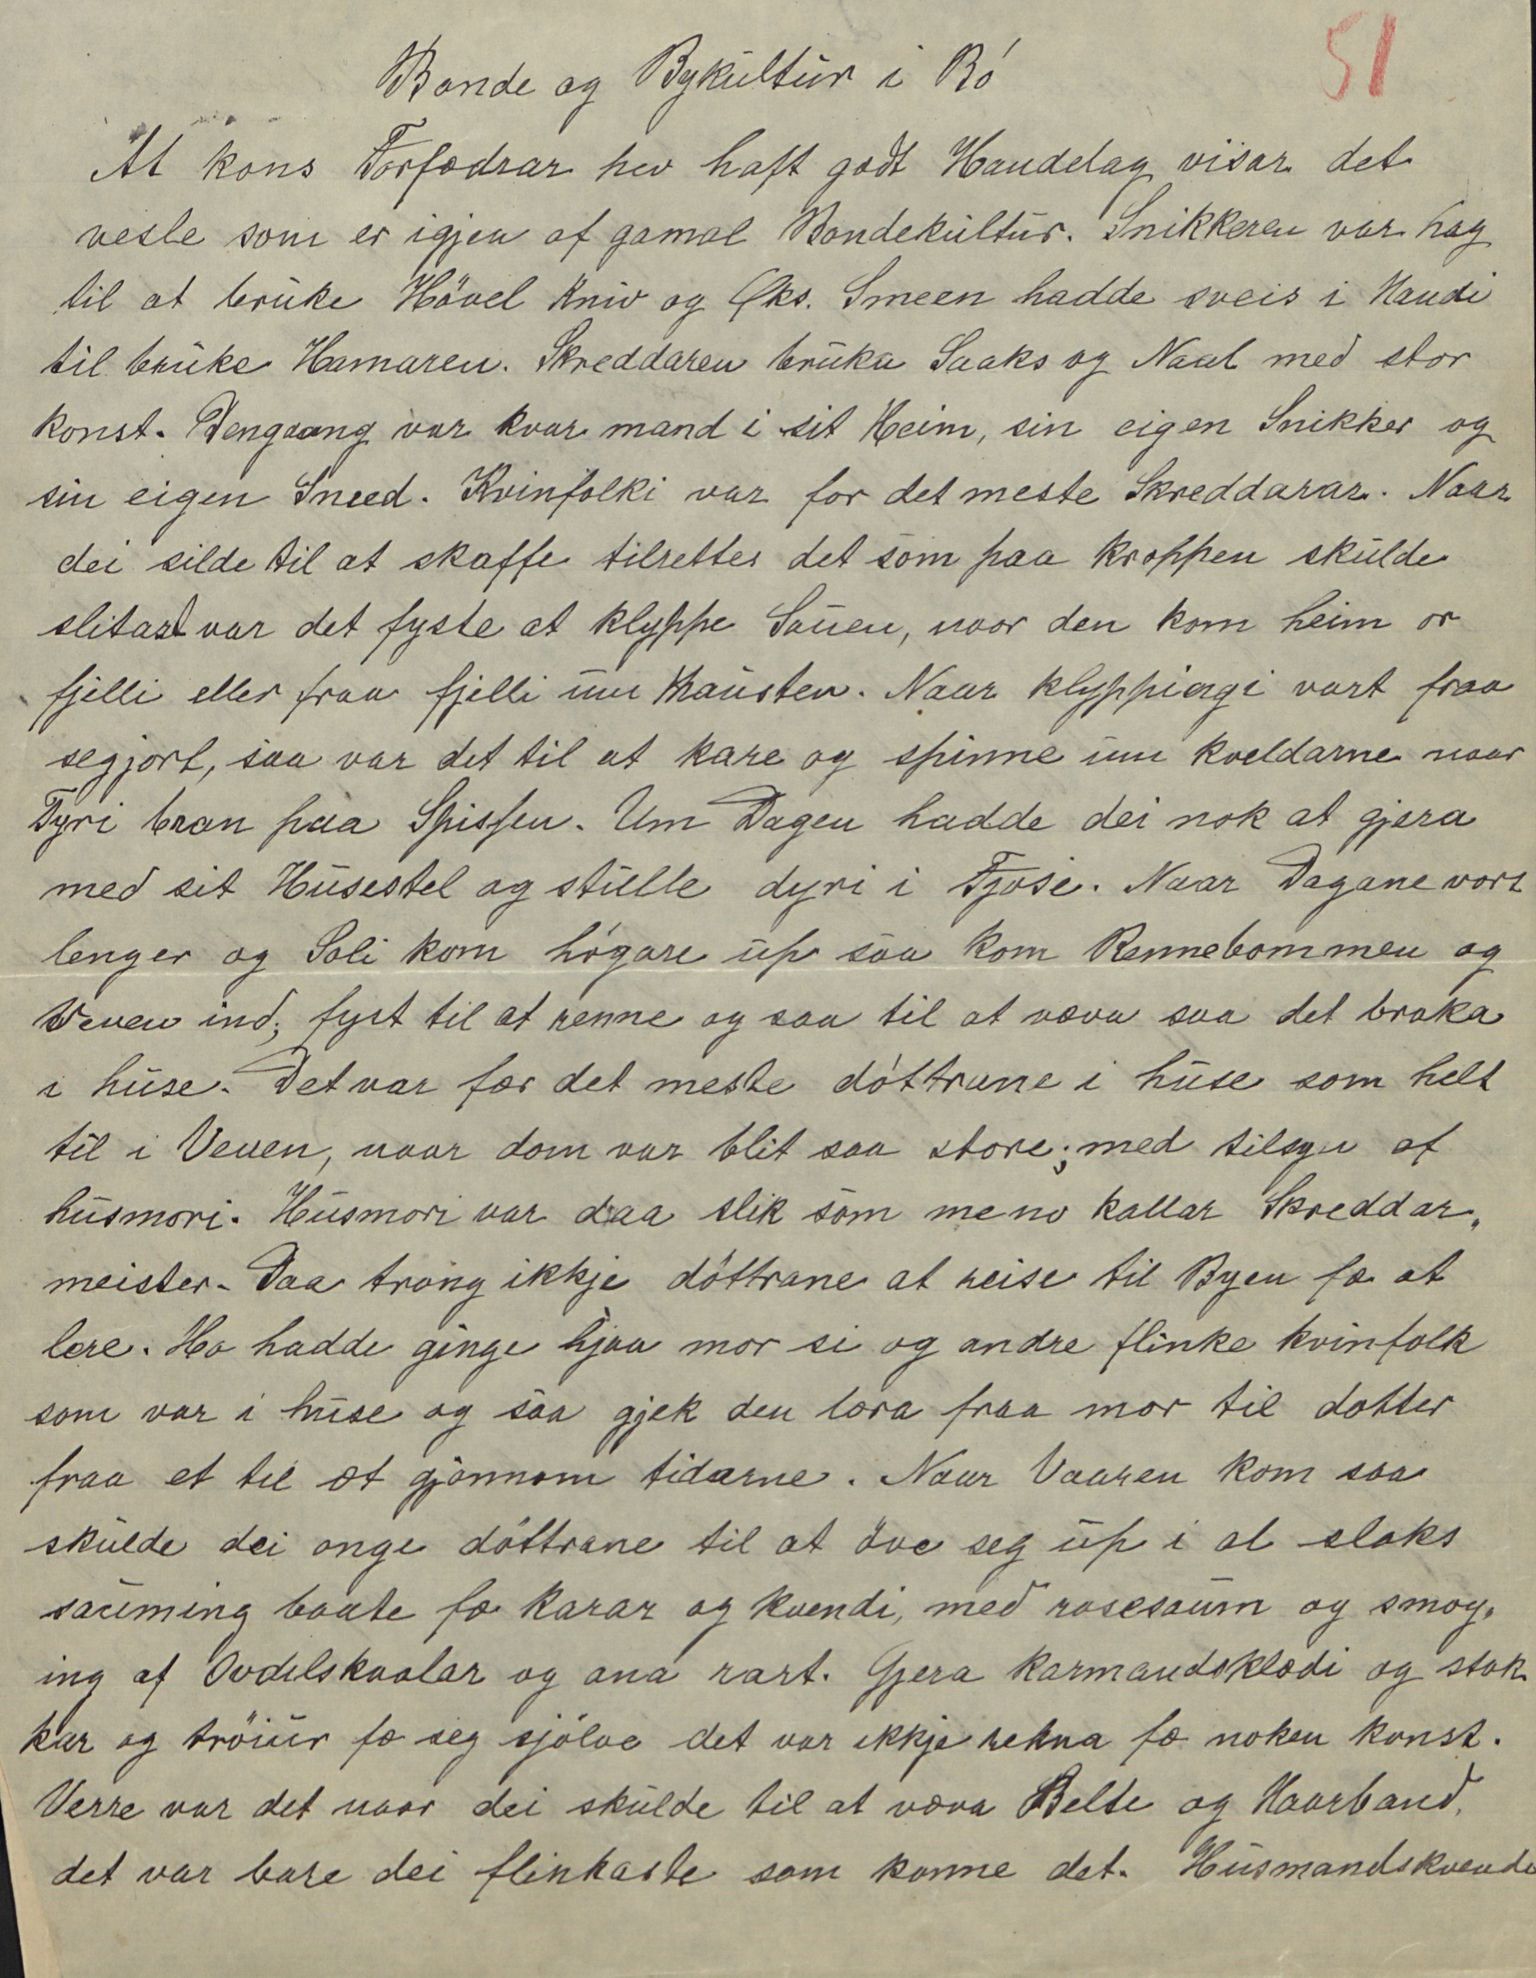 51
Bonde og Bykultur i Bó
At kons Forfædrar hev haft godt Handelag visar det
vesle som er igjen af gamal Bondekultur. Snikkeren var hag
til at bruke Hövel Kniv og Öks. Smeen hadde sveis i Handi
til bruke Hamaren. Skreddaren bruka Saaks og Naal med stor
konst. Dengaang var kvar mand i sit Heim, sin eigen Snikker og
sin eigen Smed. Kvinfolki var for det meste Skreddarar. Naar
dei silde til at skaffe tilrettes det som paa kroppen skulde
slitast var det fyste at klyppe Sauen, naar den kom heim or
fjelli eller fraa fjelli um Hausten. Naar klyppingi vart fraa
segjort, saa var det til at kare og spinne um kveldarne naar
Tyri bran paa Spissen. Um Dagen hadde dei nok at gjera
med sit Husestel og stulle dyri i Fjose. Naar Dagane vort
lenger og Soli kom högare up saa kom Rennebommen og
Veven ind; fyst til at renne og saa til at væva saa det braka
i huse. Det var for det meste dóttrane i huse som helt
til i Veven, naar dom var blit saa store; med tilsyn af
husmori. Husmori var daa slik som me no kallar Skreddar„
meister. Daa trong ikkje dóttrane at reise til Byen fæ at
lere. Ho hadde ginge hjaa mor si og andre flinke kvinfolk
som var i huse og saa gjek den læra fraa mor til dotter
fraa et til æt gjönnom tidarne. Naar Vaaren kom saa
skulde dei onge dóttrane til at öve seg up i al slaks
sauming baate fæ karar og kvendi, med rosesaum og smog„
ing af Ovdelskvalar og ana rart. Gjera karmandsklædi og stak
kar og tröiur fæ seg sjölve det var ikkje rekna fæ noken konst.
Verre var det naar dei skulde til at væva Belte og Haarband,
det var bare dei flinkaste som konne det. Husmandskvende